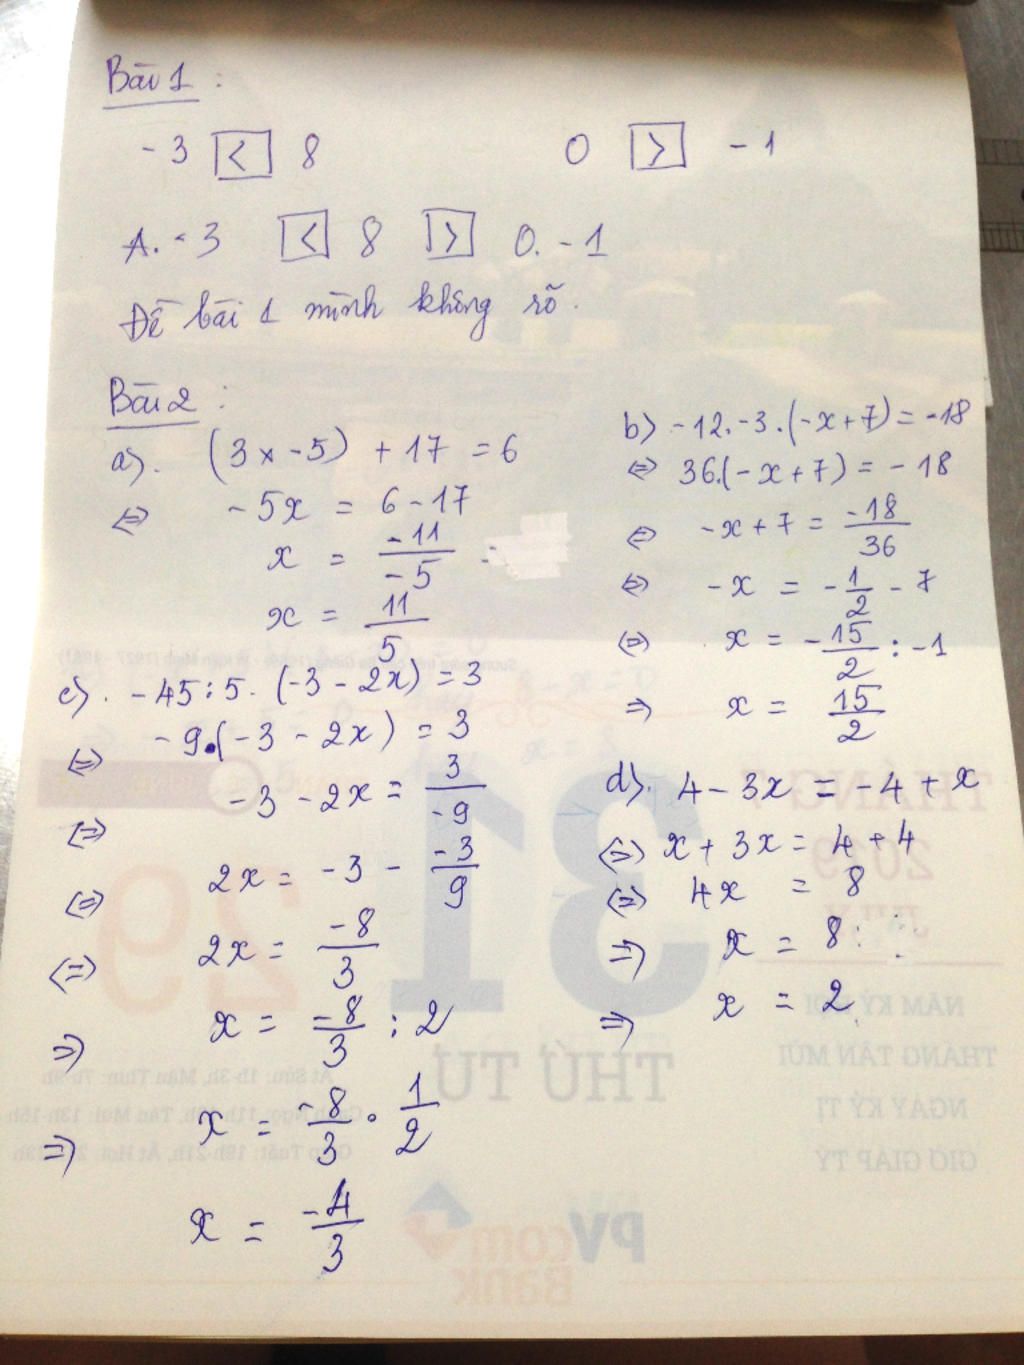 Bài 1 :
- 3 < 8 0 > - 1
A. - 3 < 8 > 0. - 1
Đề bài 1 mình không rõ.
Bài 2 :
a). (3x -5) + 17 = 6
⇔ - 5x = 6 - 17
x = -11/-5
x = 11/5
b) -12. -3 . (-x + 7) = -18
⇔ 36.(-x + 7) = - 18
⇔ -x + 7 = -18/36
⇔ - x = - 1/2 - 7
⇔ x = - 15/2 : -1
⇒ x = 15/2
c). - 45 : 5 . (-3 - 2x) = 3
⇔ - 9.(-3 - 2x) = 3
⇔ -3 - 2x = 3/-9
⇔ 2x = -3 - -3/9
⇔ 2x = -8/3
⇒ x = -8/3 : 2
⇒ x = -8/3 . 1/2
x = -4/3
d). 4 - 3x = -4 + x
⇔ x + 3x = 4 + 4
⇔ 4x = 8
⇒ x = 8 :
⇒ x = 2
31
29
THÁNG 7
2019
JULY
THỨ TƯ
NĂM KỶ HỢI
THÁNG TÂN MÙI
NGÀY KỶ TỊ
GIỜ GIÁP TÝ
PVcom
Bank